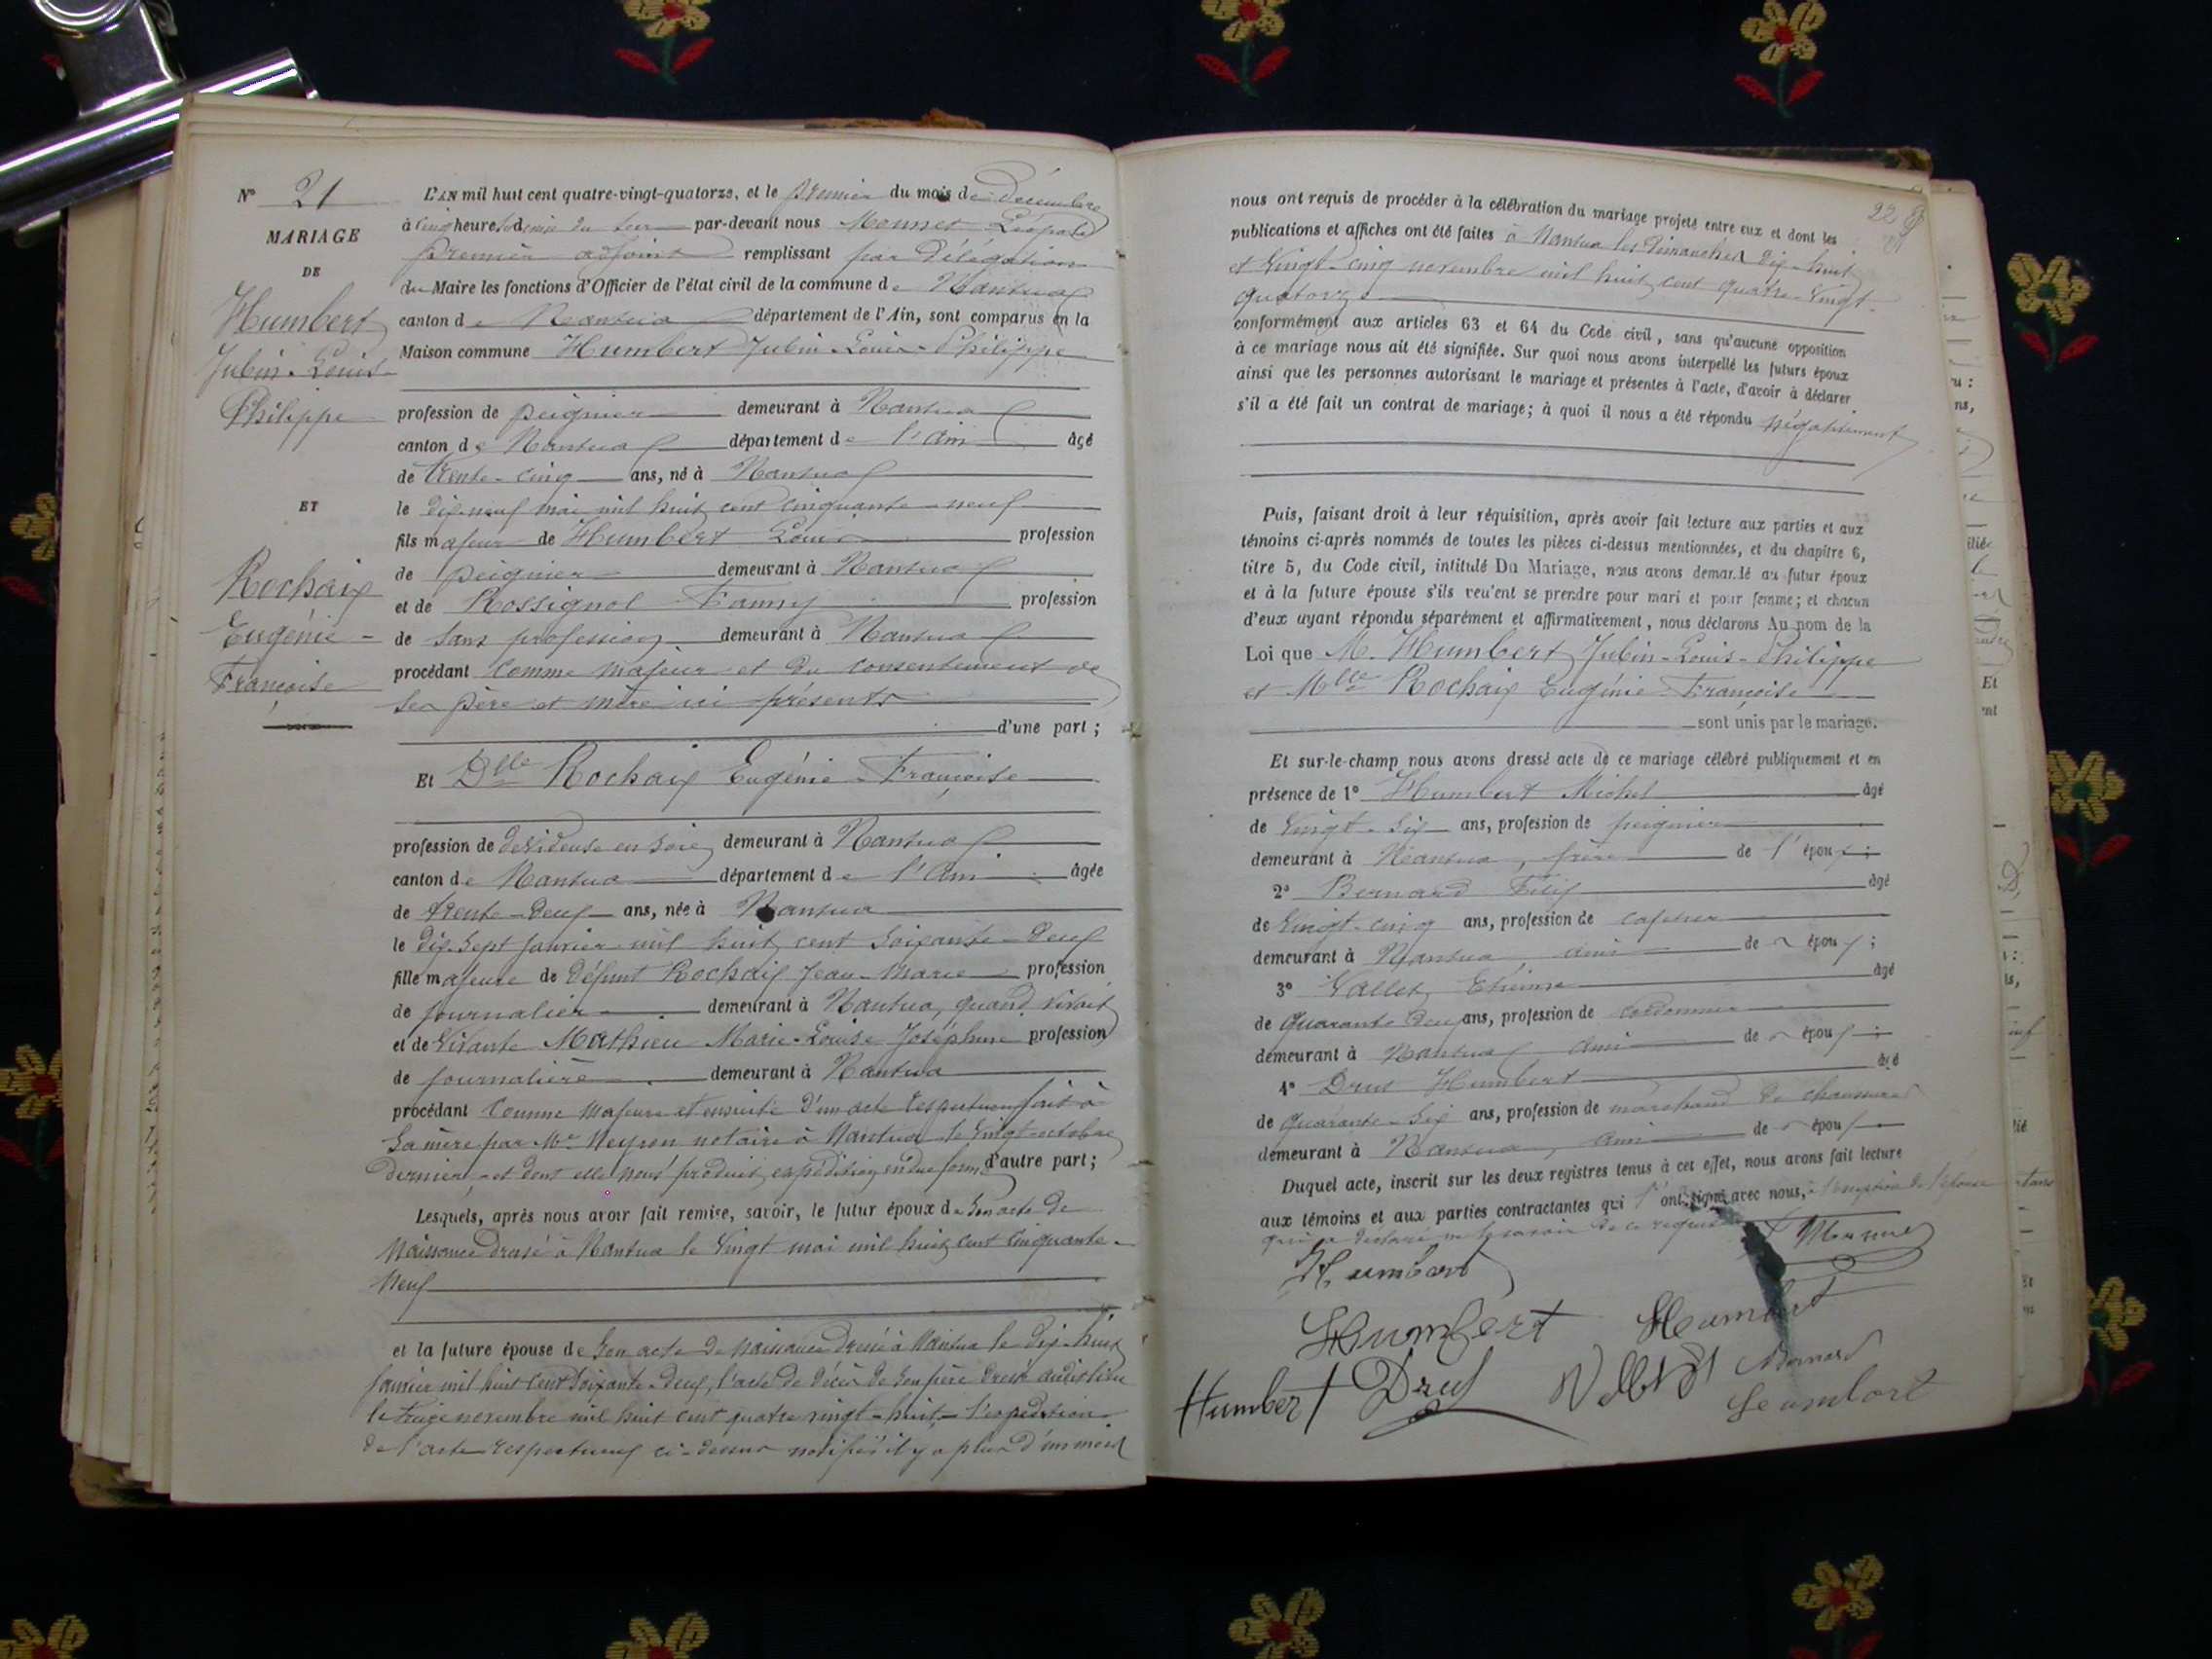 N° 21
MARIAGE
DE
Humbert
Jubin-Louis-
Philippe
ET
Rochaix
Eugénie-
Françoise
L'AN mil huit cent quatre-vingt-quatorze, et le premier du mois de Décembre
à cinq heures demie du soir par-devant nous Monnet Léopold
premier adjoint remplissant par délégation
du Maire les fonctions d'Officier de l'état civil de la commune de Nantua
canton de Nantua département de l'Ain, sont comparus en la
Maison commune Humbert Jubin-Louis-Philippe
profession de peignier demeurant à Nantua
canton de Nantua département de l'Ain âgé
de trente-cinq ans, né à Nantua
le dix-neuf mai mil huit cent cinquante-neuf
fils majeur de Humbert Louis profession
de peignier demeurant à Nantua
et de Rossignol Fanny profession
de sans profession demeurant à Nantua
procédant comme majeur et du consentement de
ses père et mère ici présents
d'une part;
Et Dlle Rochaix Eugénie-Françoise
profession de dévideuse en soie demeurant à Nantua
canton de Nantua département de l'Ain âgée
de trente-deux ans, née à Nantua
le dix-sept janvier mil huit cent soixante-deux
fille majeure de défunt Rochaix Jean-Marie profession
de journalier demeurant à Nantua, quand vivait
et de vivante Mathieu Marie-Louise Joséphine profession
de journalière demeurant à Nantua
procédant comme majeure et ensuite d'un acte respectueux fait à
sa mère par Me Neyron notaire à Nantua le vingt octobre
dernier, et dont elle nous produit expédition en due forme d'autre part;
Lesquels, après nous avoir fait remise, savoir, le futur époux de son acte de
naissance dressé à Nantua le vingt mai mil huit cent cinquante-
neuf
et la future épouse de son acte de naissance dressé à Nantua le dix-huit
janvier mil huit cent soixante-deux, l'acte de décès de son père dressé audit lieu
le treize novembre mil huit cent quatre vingt-huit, l'expédition
de l'acte respectueux ci-dessus notifié il y a plus d'un mois
22
nous ont requis de procéder à la célébration du mariage projeté entre eux et dont les
publications et affiches ont été faites à Nantua les Dimanches dix-huit
et vingt-cinq novembre mil huit cent quatre-vingt-
quatorze
conformément aux articles 63 et 64 du Code civil, sans qu'aucune opposition
à ce mariage nous ait été signifiée. Sur quoi nous avons interpellé les futurs époux
ainsi que les personnes autorisant le mariage et présentes à l'acte, d'avoir à déclarer
s'il a été fait un contrat de mariage; à quoi il nous a été répondu négativement
Puis, faisant droit à leur réquisition, après avoir fait lecture aux parties et aux
témoins ci-après nommés de toutes les pièces ci-dessus mentionnées, et du chapitre 6,
titre 5, du Code civil, intitulé Du Mariage, nous avons demandé au futur époux
et à la future épouse s'ils veulent se prendre pour mari et pour femme; et chacun
d'eux ayant répondu séparément et affirmativement, nous déclarons Au nom de la
Loi que M. Humbert Jubin-Louis-Philippe
et Mlle Rochaix Eugénie-Françoise
sont unis par le mariage.
Et sur-le-champ nous avons dressé acte de ce mariage célébré publiquement et en
présence de 1° Humbert Michel âgé
de vingt-six ans, profession de peignier
demeurant à Nantua, frère de l'époux;
2° Bernard Félix âgé
de vingt-cinq ans, profession de cafetier
demeurant à Nantua, ami de époux;
3° Vallet Etienne âgé
de quarante-deux ans, profession de cordonnier
demeurant à Nantua ami de époux;
4° Humbert âgé
de quarante-six ans, profession de marchand de chaussures
demeurant à Nantua, ami de époux
Duquel acte, inscrit sur les deux registres tenus à cet effet, nous avons fait lecture
aux témoins et aux parties contractantes qui l'ont signé avec nous, à l'exception de l'épouse
qui a déclaré ne le savoir de ce requise
Humbert
Humbert Humbert
Humbert Bernard
Humbert